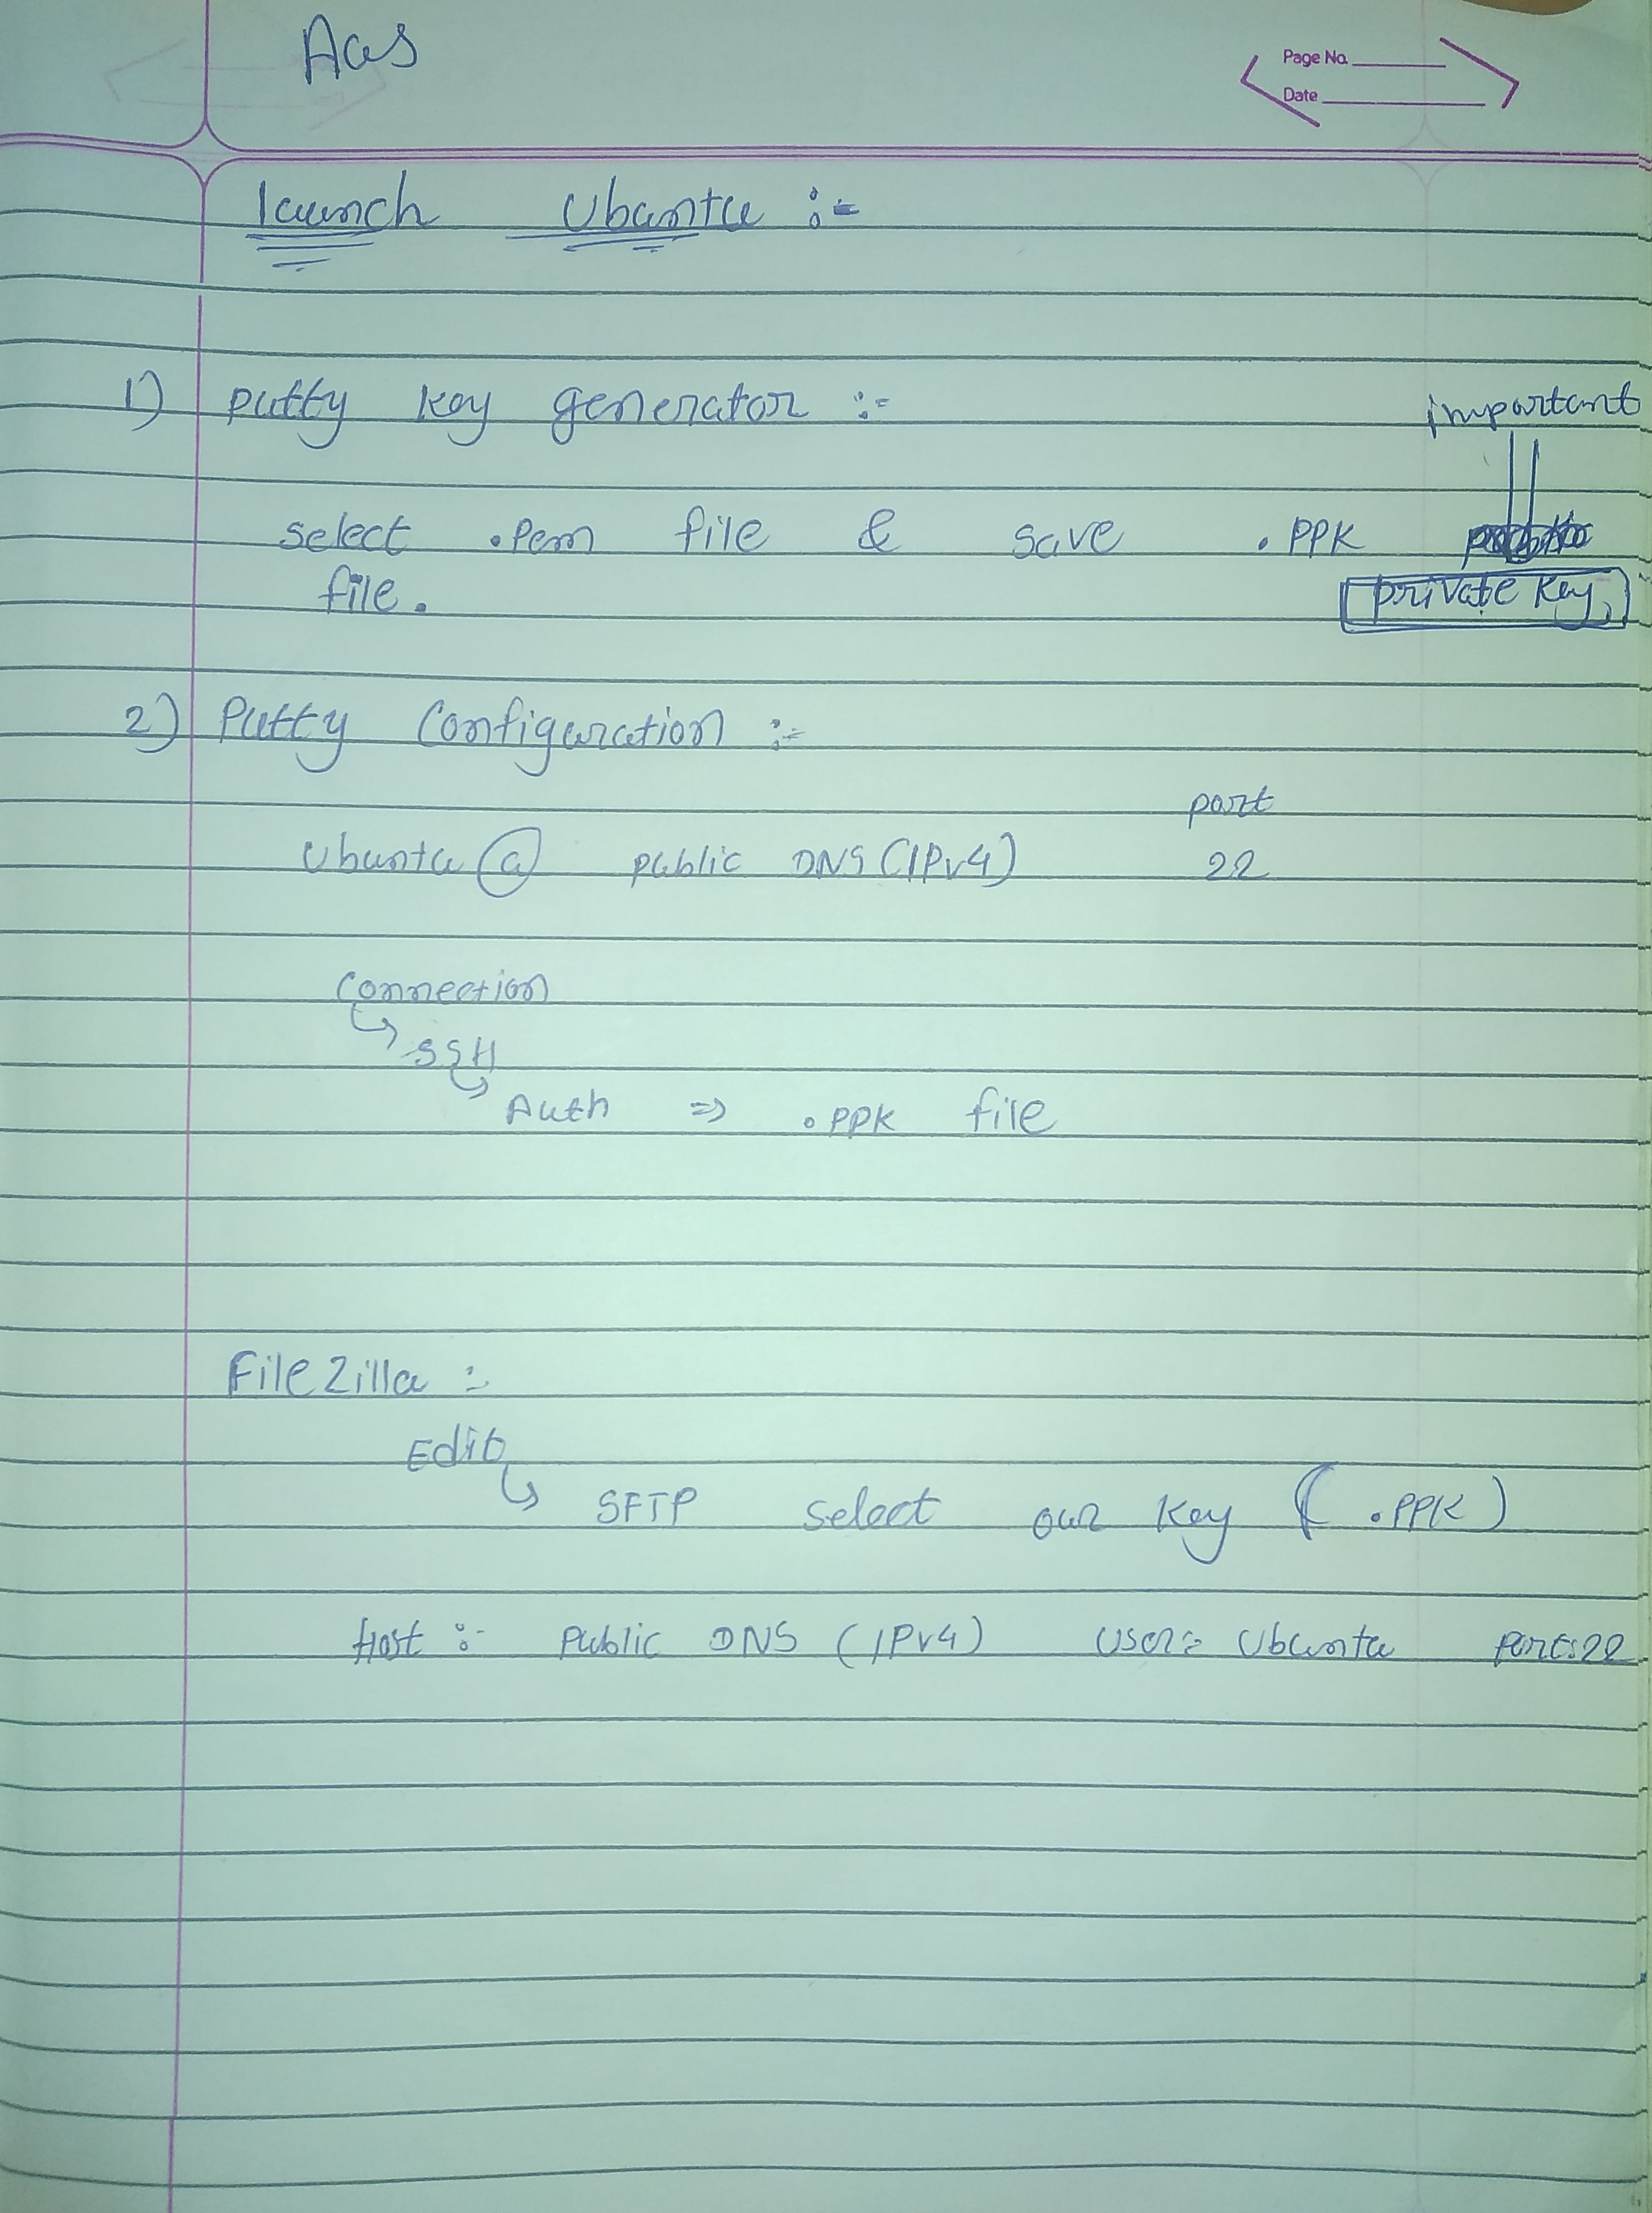 Aws
Page No.
Date
launch Ubantu :-
1) putty key generator :-
important
select .Pem file & save .PPK
file. private key,
2) Putty Configuration :-
port
Ubuntu @ public DNS (IPv4) 22
Connection
SSH
Auth => .PPK file
FileZilla :-
Edit
SFTP select our key ( .PPK )
Host :- Public DNS (IPv4) User= Ubuntu port:22